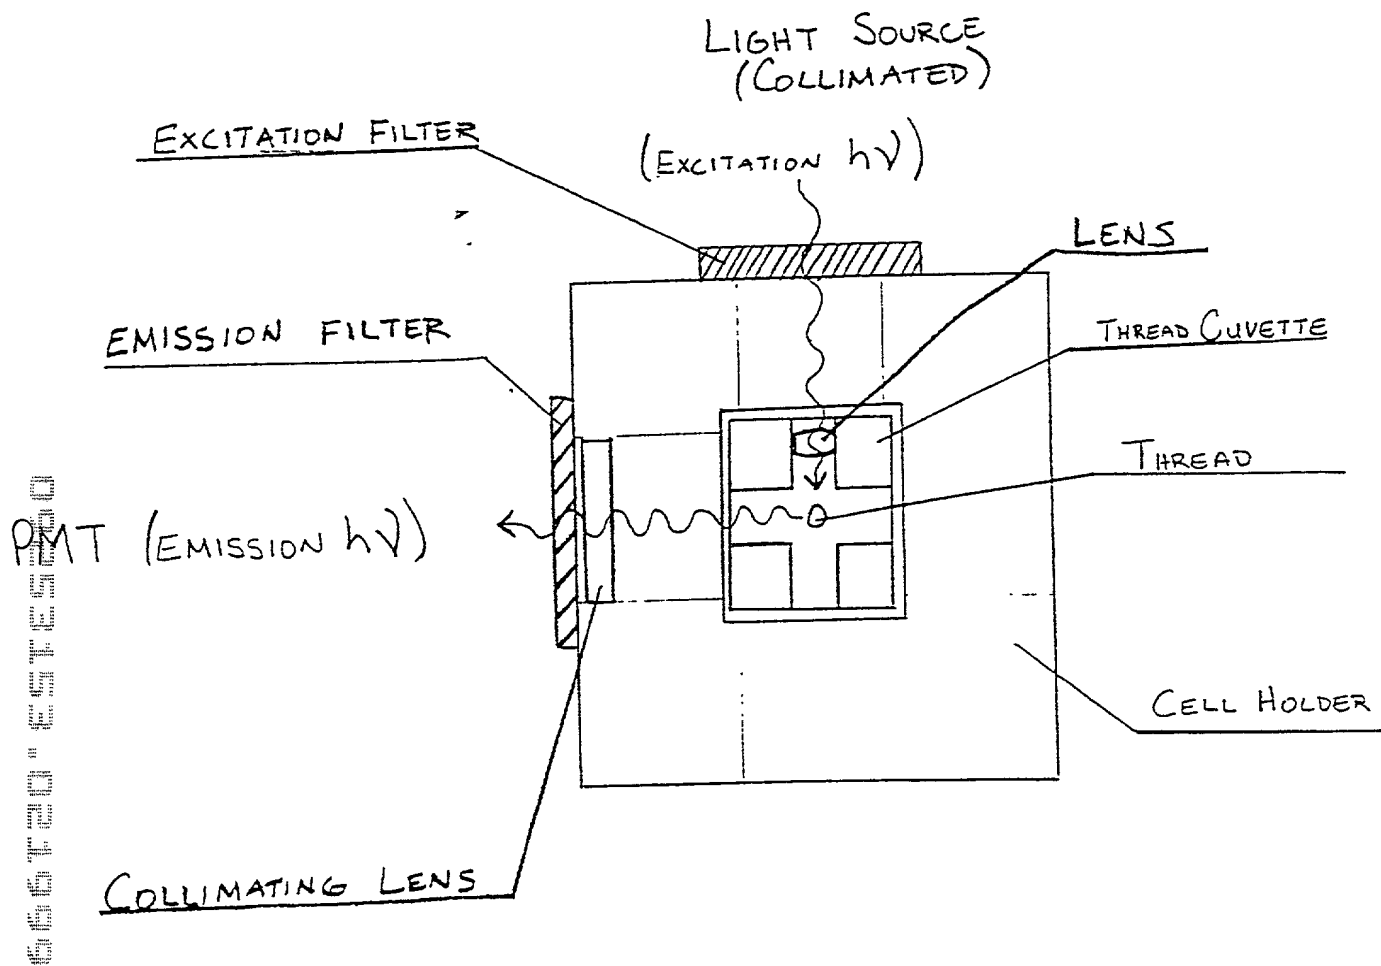 LIGHT SOURCE
(COLLIMATED)
EXCITATION FILTER
(EXCITATION hν)
LENS
EMISSION FILTER
THREAD CUVETTE
THREAD
PMT (EMISSION hν)
CELL HOLDER
COLLIMATING LENS